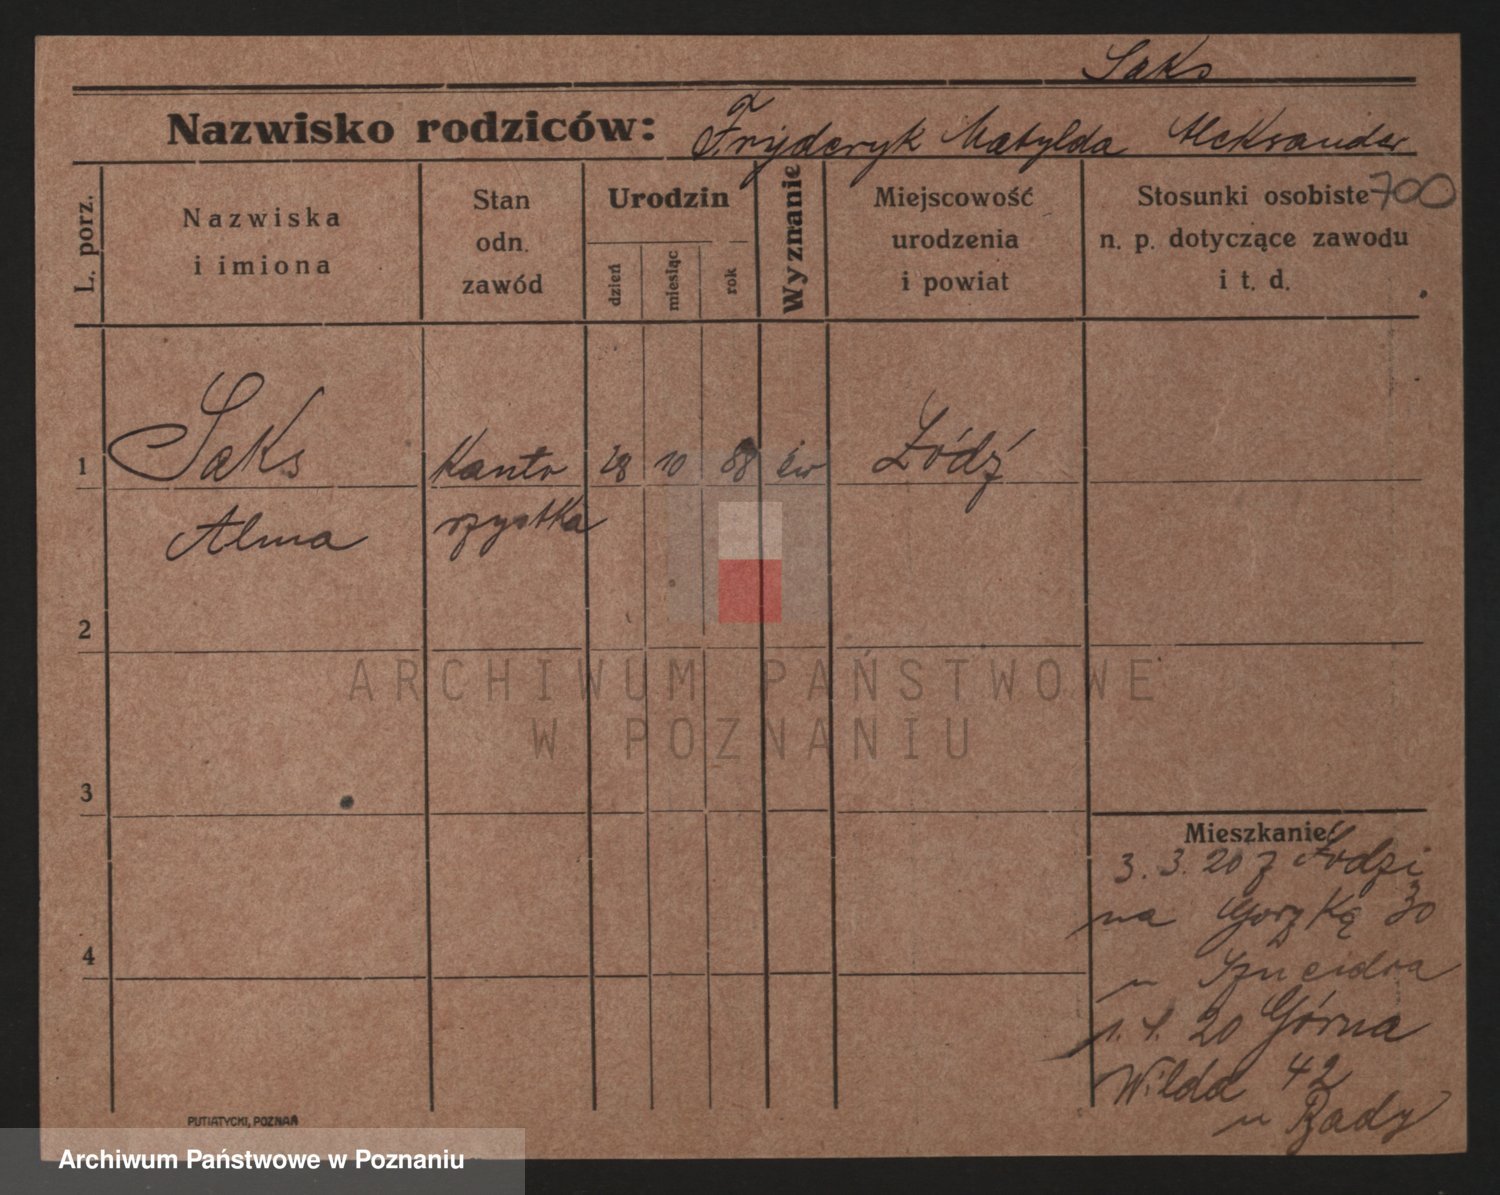 Saks
Nazwisko rodziców: Fryderyk Matylda Aleksander
700
L. porz.
Nazwiska
i imiona
Stan
odn.
zawód
Urodzin
dzień
miesiąc
rok
Wyznanie
Miejscowość
urodzenia
i powiat
Stosunki osobiste
n. p. dotyczące zawodu
i t. d.
1
Saks
Alma
Kanto
rzystka
28
10
88
Ew
Łódź
2
3
4
Mieszkanie:
3. 3. 20 z Łodzi
na Górzką 30
u
1. 4. 20 Górna
Wilda 42
u
ARCHIWUM PAŃSTWOWE
W POZNANIU
PUTIATYCKI, POZNAŃ
Archiwum Państwowe w Poznaniu